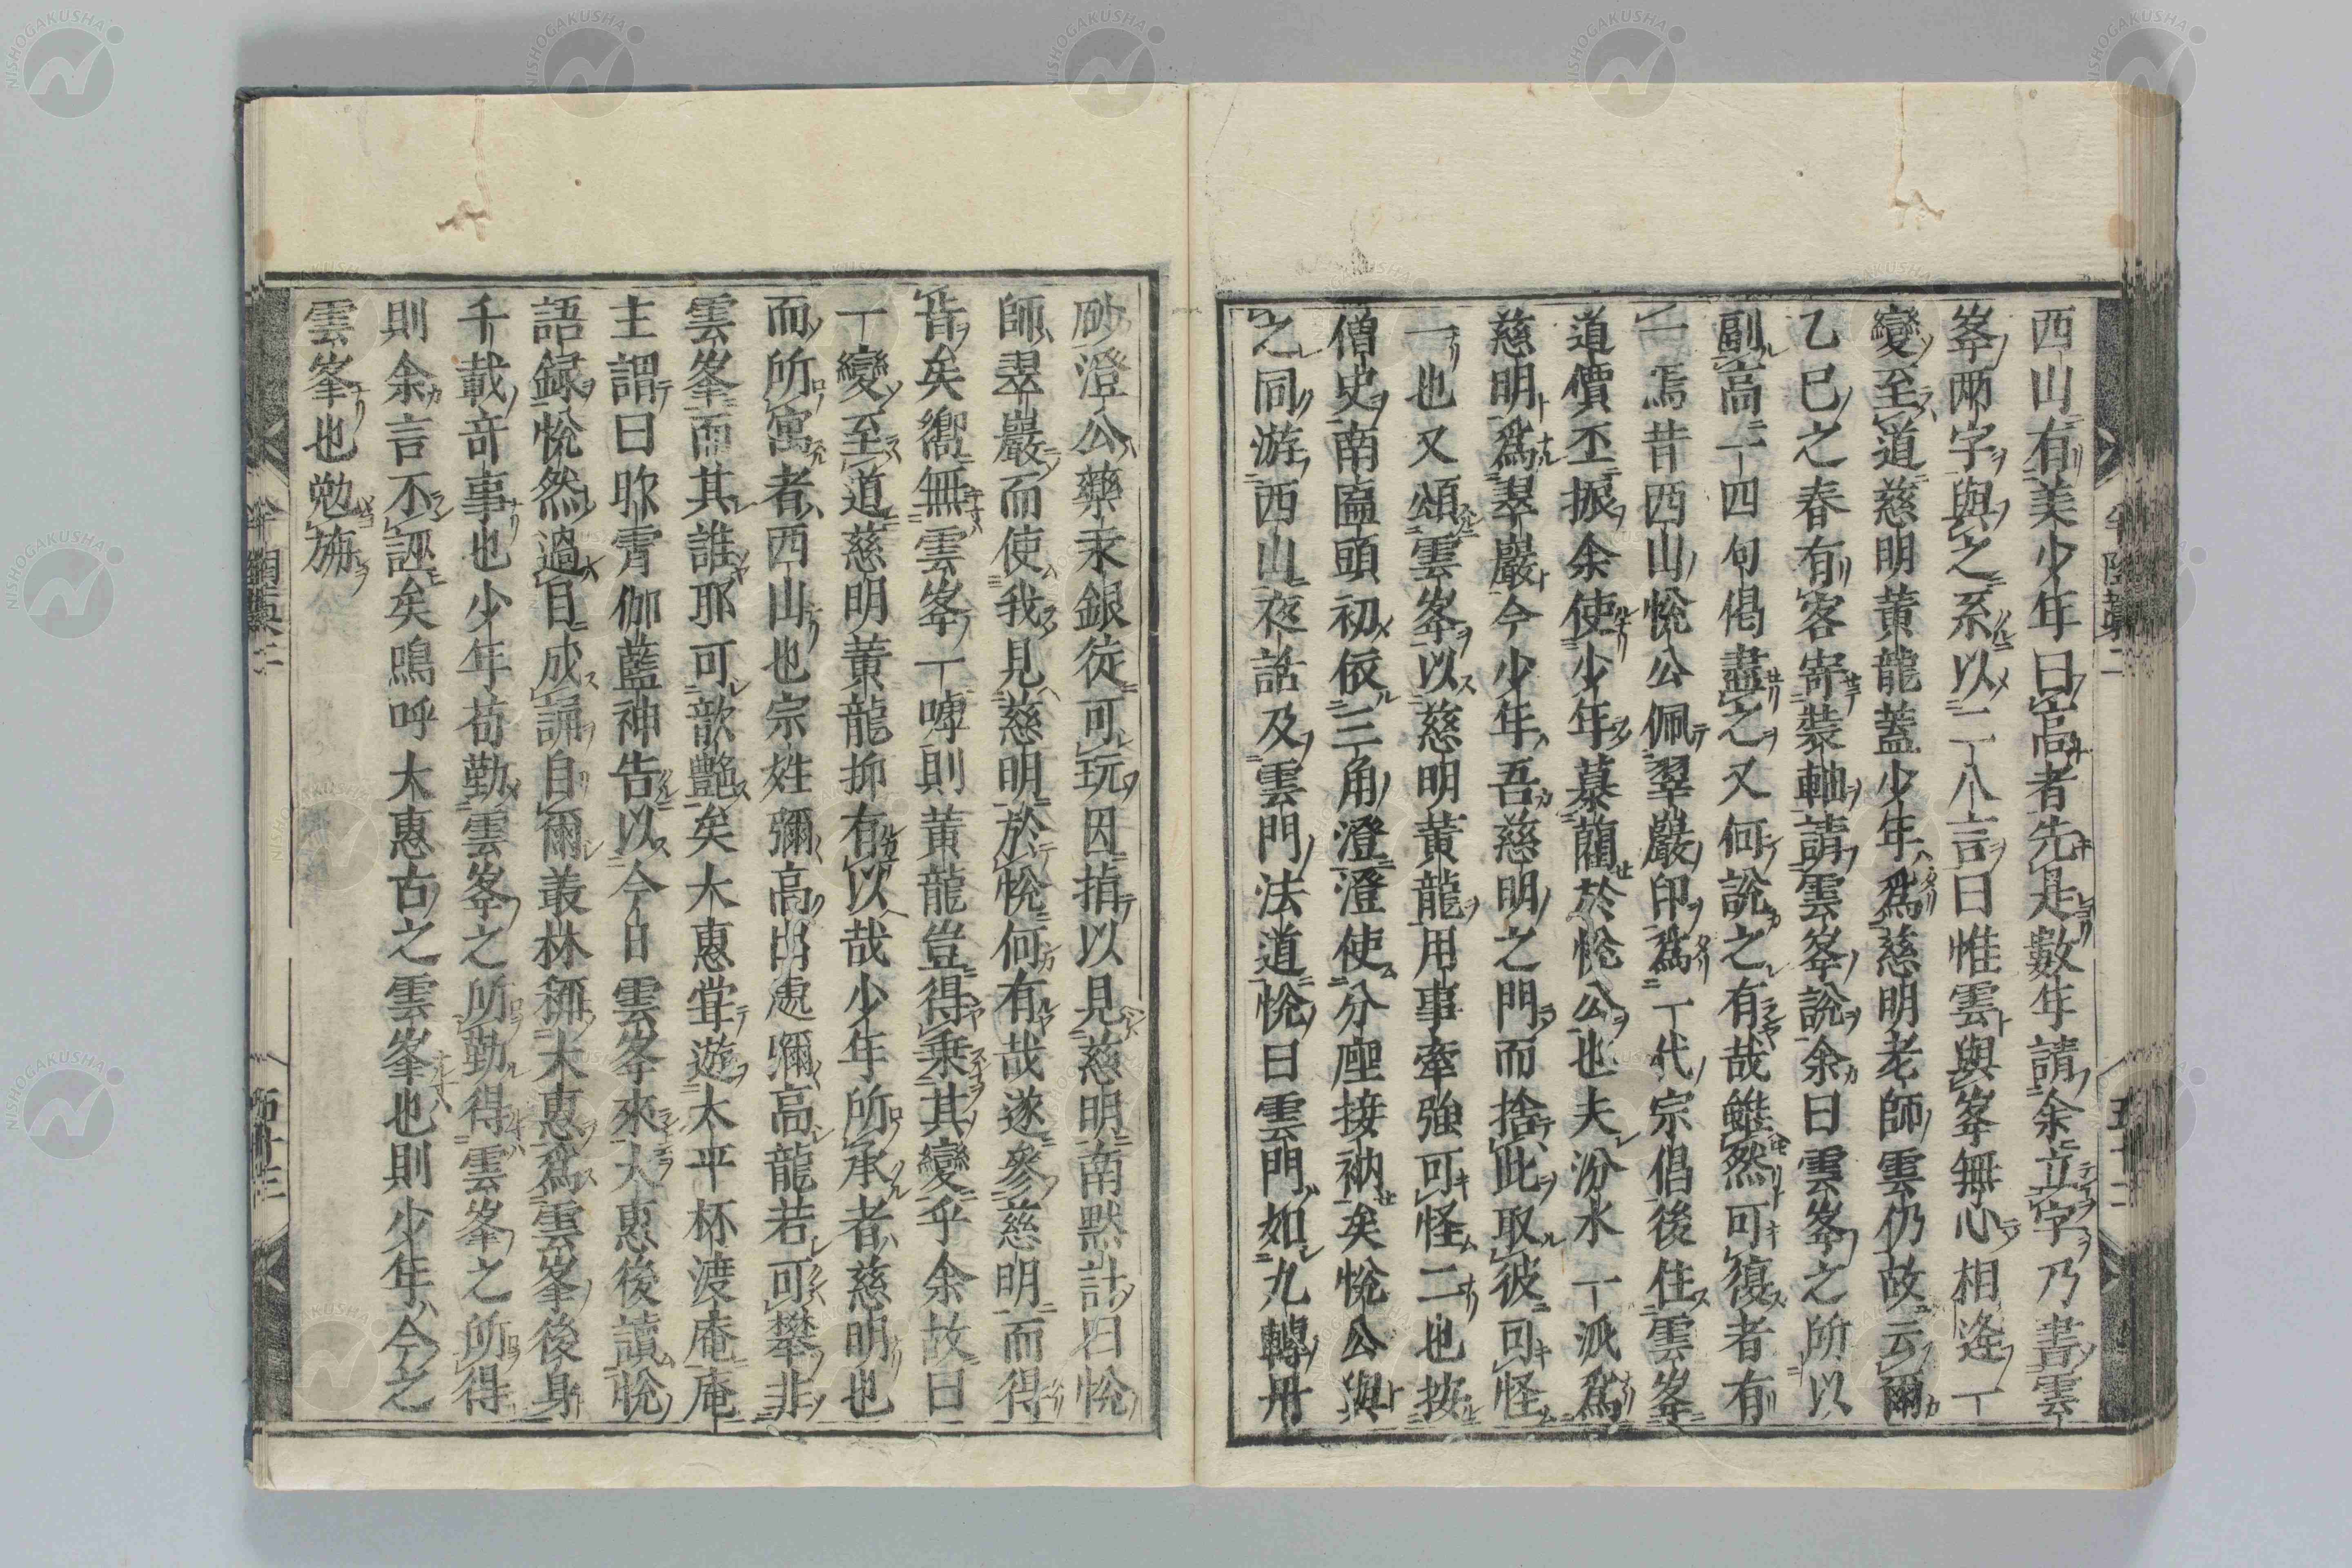 西山有美少年曰高者先是數年請余立字乃書雲
峯兩字與之系以二八言曰惟雲與峯無心相逢一
變至道慈明黃龍蓋少年爲慈明老師雲仍故云爾
乙巳之春有客寄裝軸請雲峯說余曰雲峯之所以
副高一十四句偈盡之又何說之有哉雖然可復者有
一焉昔西山悅公佩翠巖印爲一代宗倡後住雲峯
道價丕振余使少年慕藺於悅公也夫汾水一派爲
慈明爲翠巖今少年吾慈明之門而捨此取彼可怪
一也又頌雲峯以慈明黃龍用事牽強可怪二也按
僧史南匾頭初依三角澄澄使分座接衲矣悅公與
之同游西山夜話及雲門法道悅曰雲門如九轉丹
砂澄公藥汞銀徒可玩因揕以見慈明南默計曰悅
師翠巖而使我見慈明於悅何有哉遂參慈明而得
旨矣嚮無雲峯一嘑則黃龍豈得乘其變乎余故曰
一變至道慈明黃龍抑有以哉少年所承者慈明也
而所寓者西山也宗姓彌高出處彌高龍若可攀非
雲峯而其誰耶可歆艷矣大惠甞遊太平杯渡庵庵
主謂曰昨霄伽藍神告以今日雲峯來大惠後讀悅
語録恍然過目成誦自爾叢林稱大惠爲雲峯後身
千載奇事也少年苟勤雲峯之所勤得雲峯之所得
則余言不誣矣嗚呼大惠古之雲峯也則少年今之
雲峯也勉旃